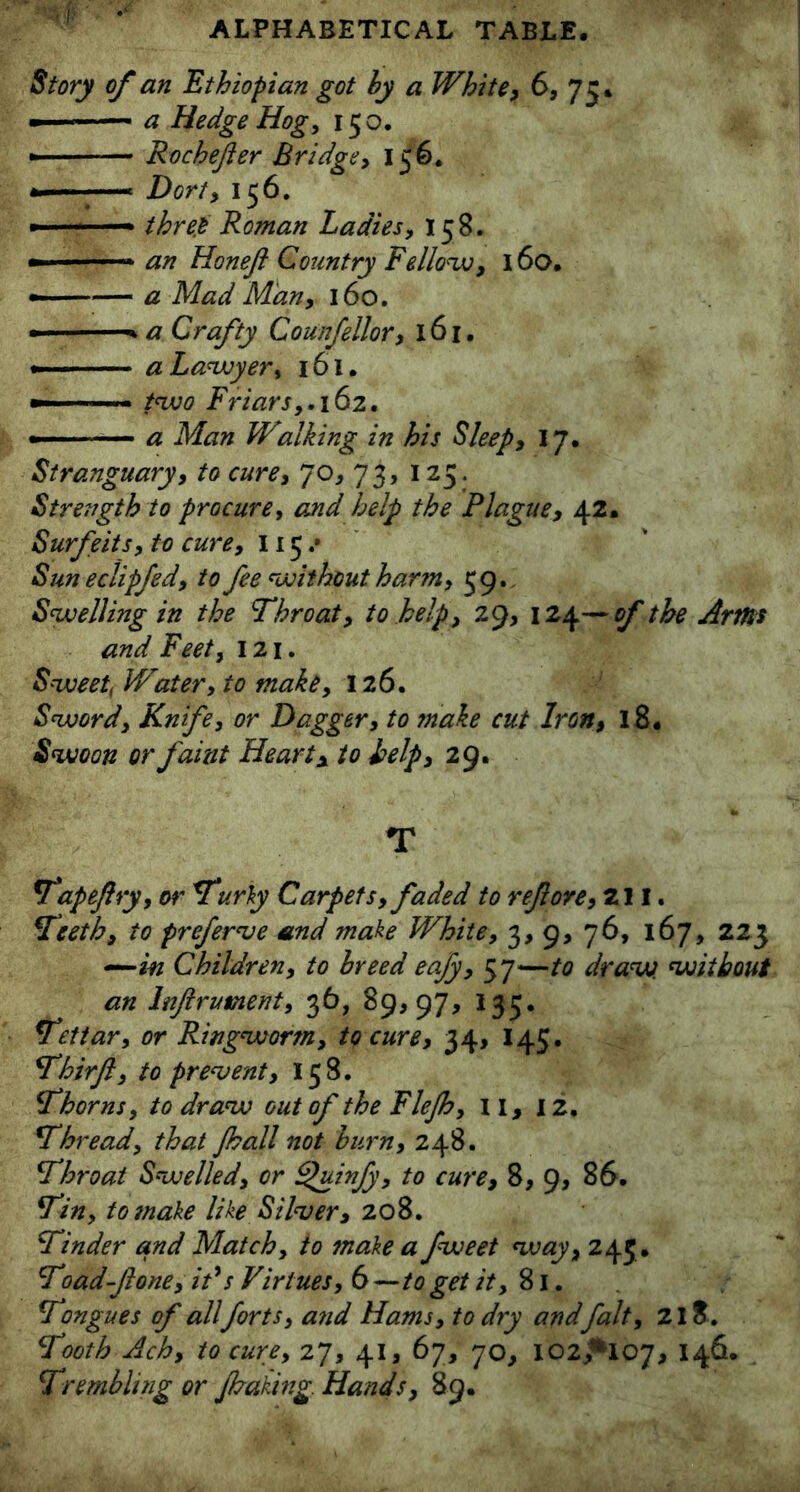 ALPHABETICAL TABLE.
Story of an Ethiopian got by a White, 6, 75.
——— a Hedge Hog, 150.
——— Rocheſter Bridge, 156.
——— Dort, 156.
——— three Roman Ladies, 158.
——— an Honeſt Country Fellow, 160.
——— a Mad Man, 160.
——— a Crafty Counſellor, 161.
——— a Lawyer, 161.
——— two Friars, 162.
——— a Man Walking in his Sleep, 17.
Stranguary, to cure, 70, 73, 125.
Strength to procure, and help the Plague, 42.
Surfeits, to cure, 115.
Sun eclipſed, to ſee without harm, 59.
Swelling in the Throat, to help, 29, 124—of the Arms
and Feet, 121.
Sweet Water, to make, 126.
Sword, Knife, or Dagger, to make cut Iron, 18.
Swoon or faint Heart, to help, 29.
T
Tapeſtry, or Turky Carpets, faded to reſtore, 211.
Teeth, to preſerve and make White, 3, 9, 76, 167, 223
—in Children, to breed eaſy, 57—to draw without
an Inſtrument, 36, 89, 97, 135.
Tettar, or Ringworm, to cure, 34, 145.
Thirſt, to prevent, 158.
Thorns, to draw out of the Fleſh, 11, 12.
Thread, that ſhall not burn, 248.
Throat Swelled, or Quinſy, to cure, 8, 9, 86.
Tin, to make like Silver, 208.
Tinder and Match, to make a ſweet way, 245.
Toad-ſtone, it's Virtues, 6—to get it, 81.
Tongues of all ſorts, and Hams, to dry and ſalt, 218.
Tooth Ach, to cure, 27, 41, 67, 70, 102, 107, 146.
Trembling or ſhaking Hands, 89.